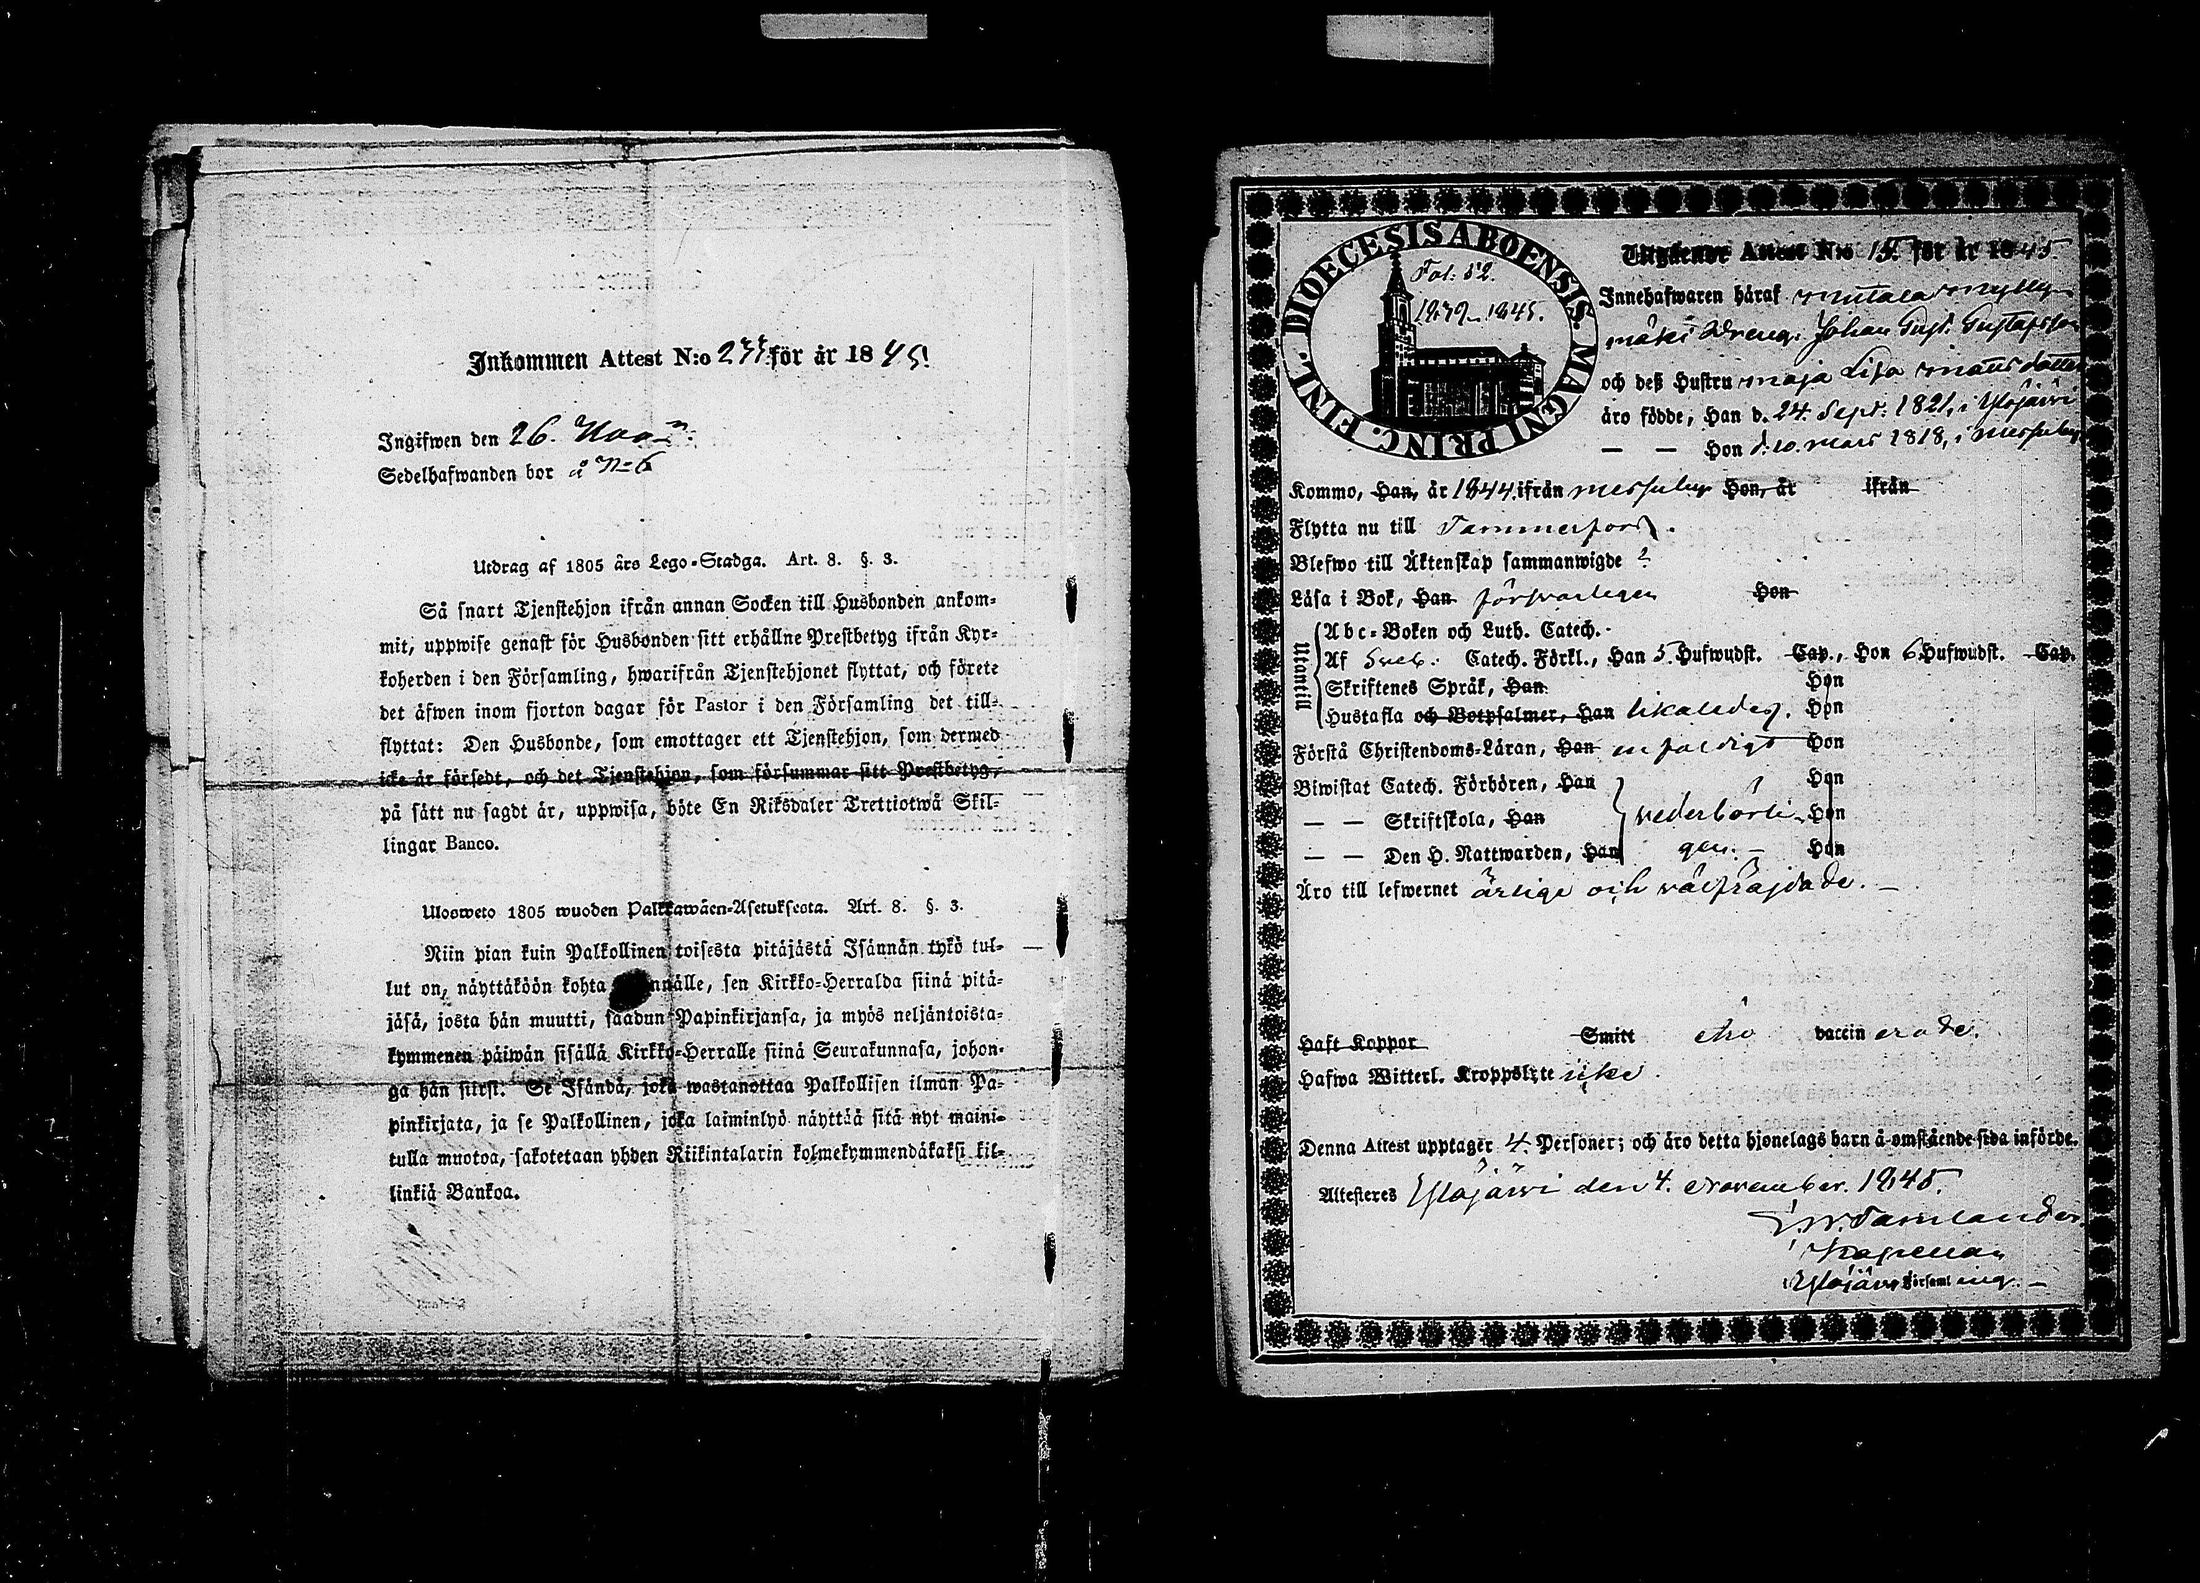 Inkommen Attest N:o 233. för år 1845.
Ingifwen den 26. Nov
Sedelhafwanden bor å N:o 6
Utdrag af 1805 års Lego-Stadga. Art. 8. §. 3.
Så snart Tjenstehjon ifrån annan Socken till Husbonden ankom-
mit, uppwise genast för Husbonden sitt erhållne Prestbetyg ifrån Kyr-
koherden i den Församling, hwarifrån Tjenstehjonet flyttat, och förete
det äfwen inom fjorton dagar för Pastor i den Församling det till-
flyttat: Den Husbonde, som emottager ett Tjenstehjon, som dermed
icke är försedt, och det Tjenstehjon, som försummar sitt Prestbetyg,
på sätt nu sagdt är, uppwisa, böte En Riksdaler Trettiotwå Skil-
lingar Banco.
Ulosweto 1805 wuoden Palkkawäen-Asetuksesta. Art. 8. §. 3.
Niin pian kuin Palkollinen toisesta pitäjästä Isännän tykö tul-
lut on, näyttäköön kohta nnälle, sen Kirkko-Herralda siinä pitä-
jäsä, josta hän muutti, saadun Papinkirjansa, ja myös neljäntoista-
kymmenen päiwän sisällä Kirkko-Herralle siinä Seurakunnasa, johon-
ga hän siirsi. Se Isändä, joka wastanottaa Palkollisen ilman Pa-
pinkirjata, ja se Palkollinen, joka laiminlyö näyttää sitä nyt maini-
tulla muotoa, sakotetaan yhden Riikintalarin kolmekymmendäkaksi kil-
linkiä Bankoa.
DIOECESIS ABOENSIS. MAGNI PRINC. FINL.
Fol: 52.
1839-1845.
Utgående Attest N:o 15. för år 1845.
Innehafwaren häraf Mutala Mylly
mäki Dreng. Johan Gust. Gustafsson
och deß Hustru Maja Lisa Mattsdotter
äro födde, Han d. 24. Sept: 1821, i Ylöjärvi
— — Hon d. 10. Mars 1818, i Messuby
Kommo, Han, år 1844. ifrån Messuby Hon, år ifrån
Flytta nu till Tammerfors.
Blefwo till Äktenskap sammanwigde ?
Läsa i Bok, Han försvarligen Hon
Utantill
Abc-Boken och Luth. Catech.
Af Sveb: Catech. Förkl., Han 5. Hufwudst. Cap., Hon 6 Hufwudst. Cap.
Skriftenes Språk, Han Hon
Hustafla och Botpsalmer, Han likaledes. Hon
Förstå Christendoms-Läran, Han enfaldigt Hon
Biwistat Catech. Förhören, Han Hon
— — Skriftskola, Han vederbörli- Hon
— — Den H. Nattwarden, Han gen. — Hon
Äro till lefwernet ärlige och välfräjdade. —
Haft Koppor Smitt Äro vaccinerade.
Hafwa Witterl. Kroppslyte icke.
Denna Attest upptager 4. Personer; och äro detta hjonelags barn å omstående sida införde.
Attesteres Ylöjärvi den 4. November. 1845.
Kapellan
i Ylöjärvi Församling. —